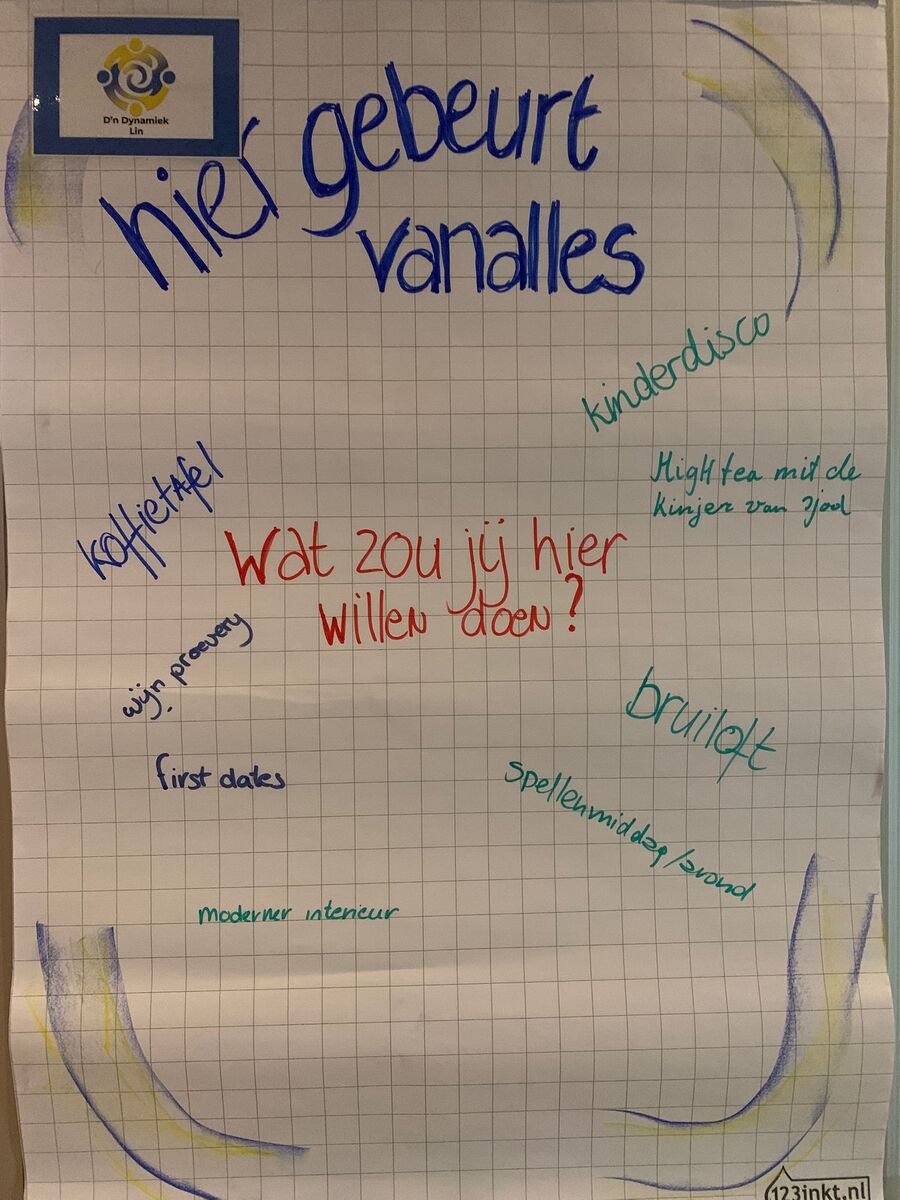 D'n Dynamiek
Lin
hier gebeurt
vanalles
kinderdisco
High tea mit de
kinjer van
koffietafel
Wat zou jij hier
willen doen?
wijn proevery
bruiloft
first dates
Spellenmiddag/avond
Moderner interieur
123inkt.nl